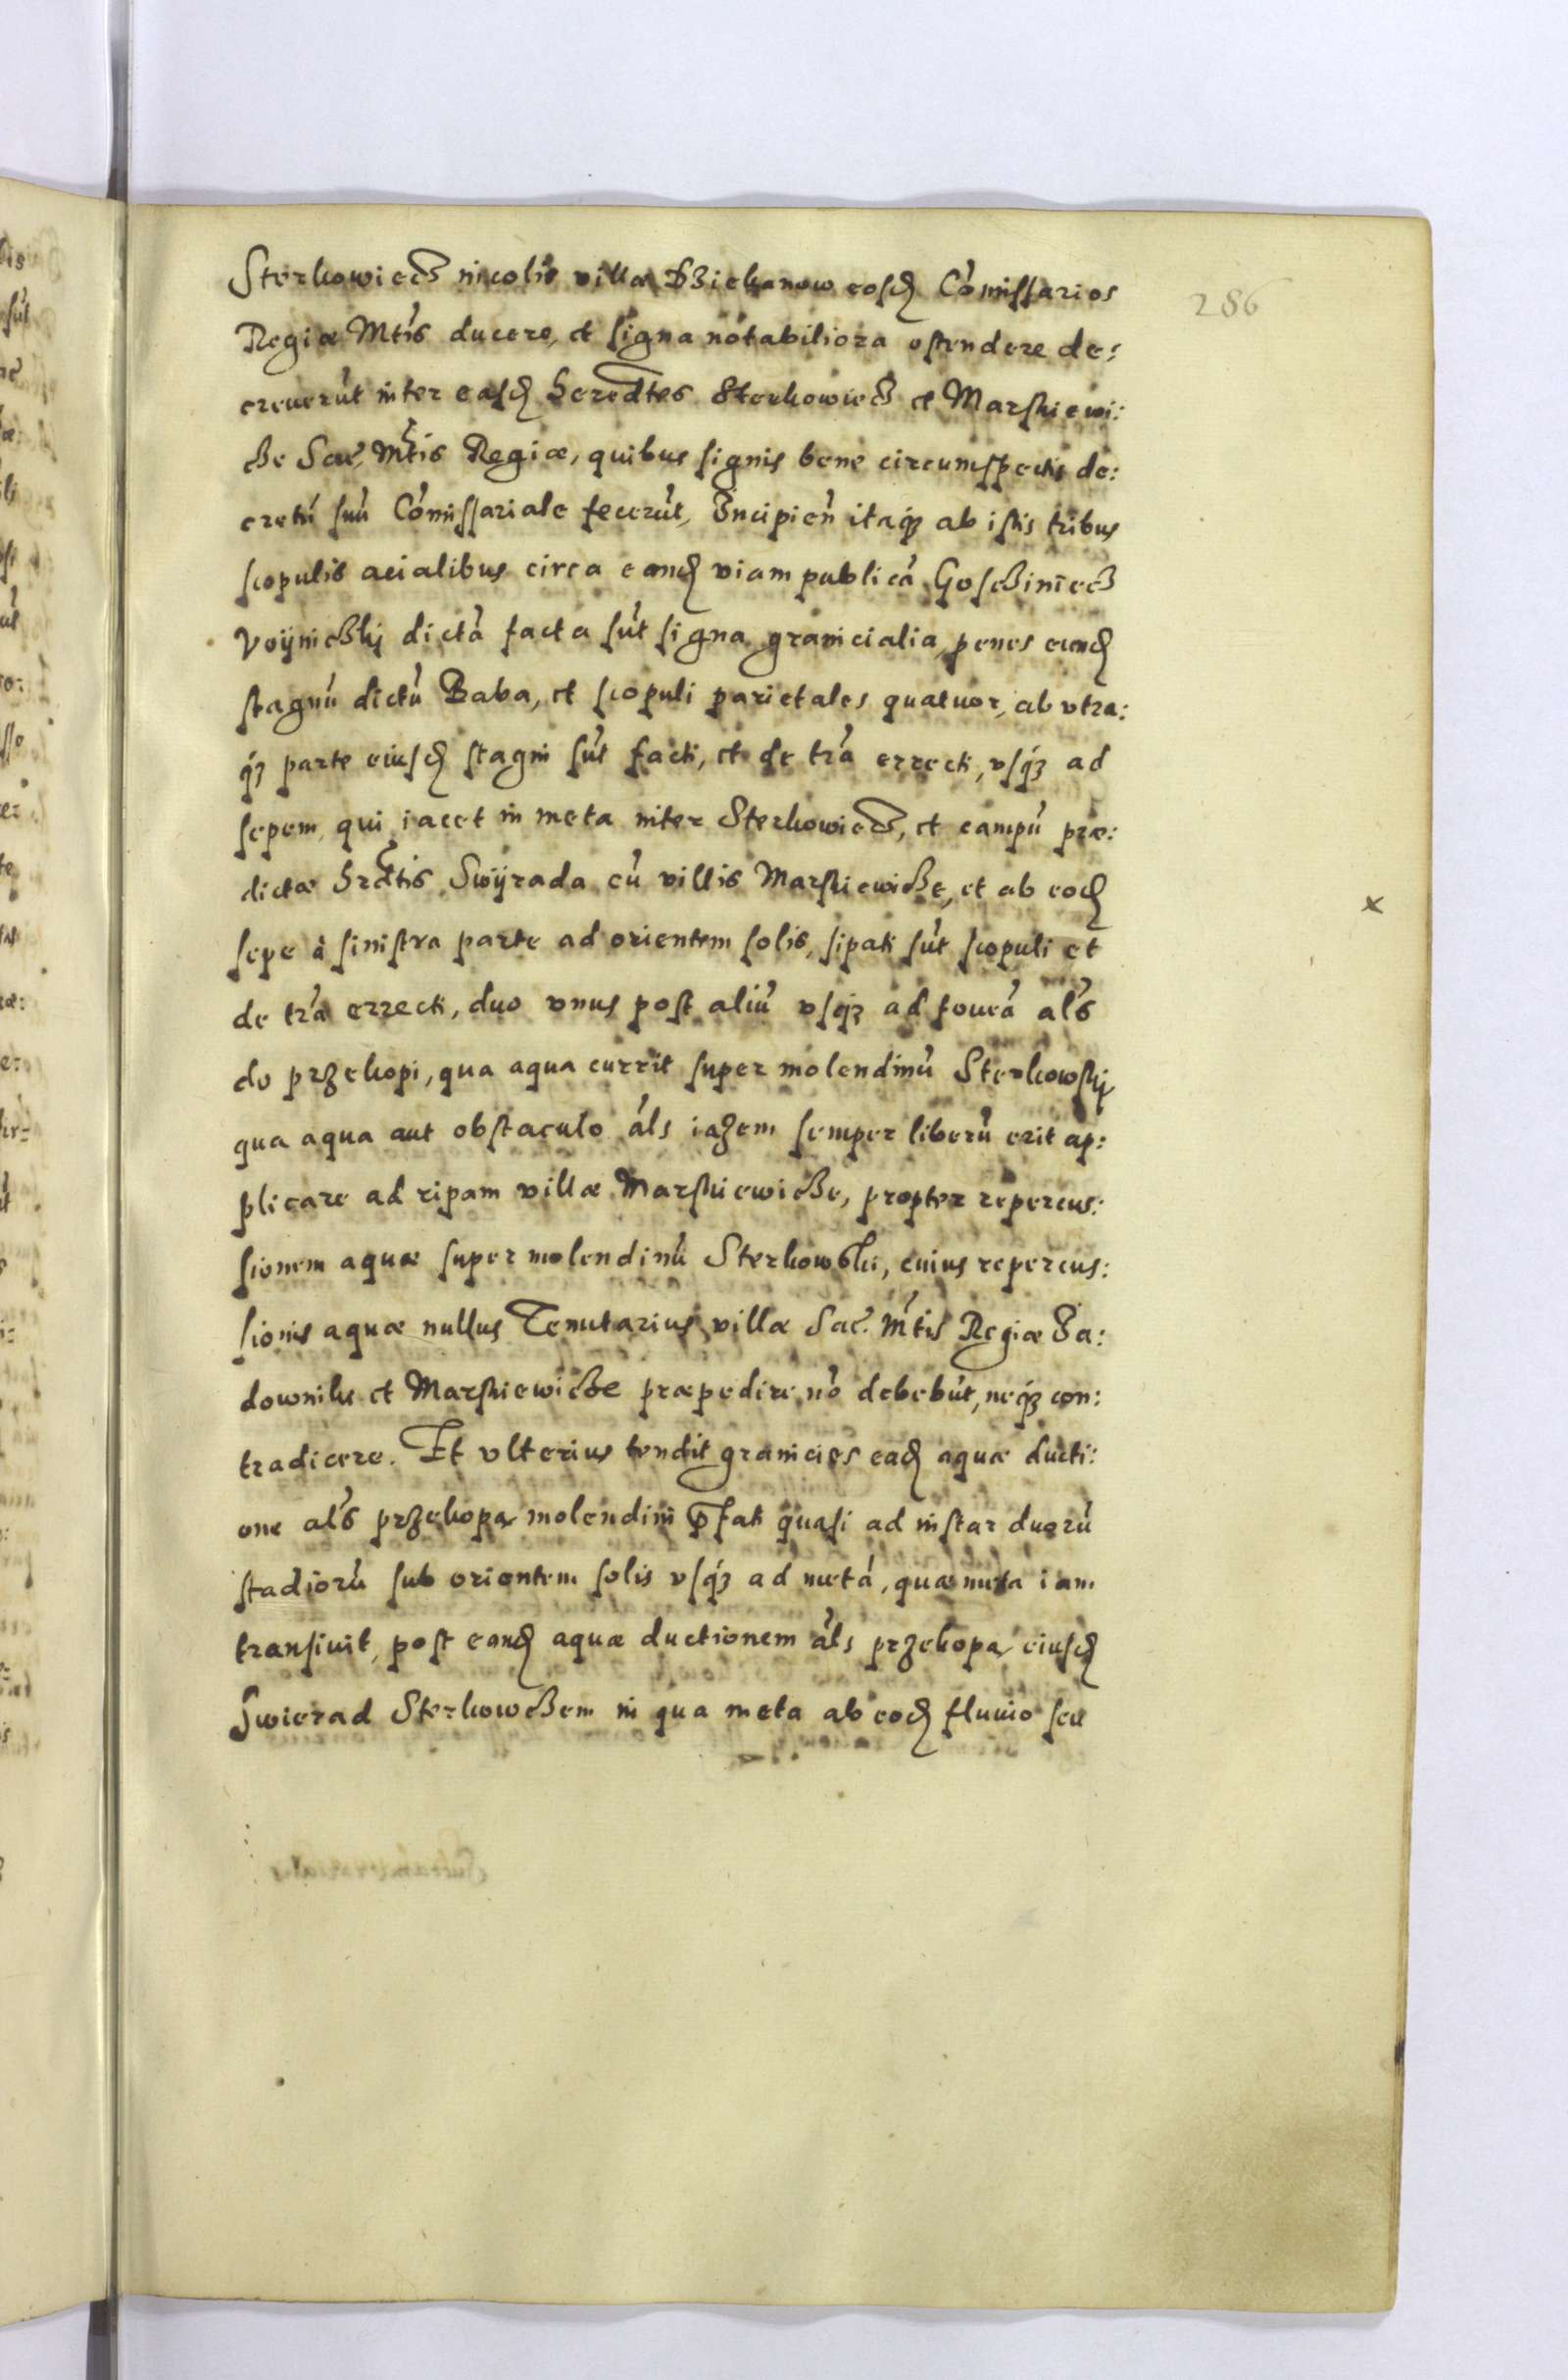 Sterkowiecz incolis villæ Dziekanow eosd Comissarios
286
Regiæ Mtis ducere, et signa notabiliora ostendere de:
creuerūt inter easd heredtes Sterkowiecz et Marskiewi:
cze Sac. Mtis Regiæ, quibus signis bene circumspectis de:
cretū suū Cōmissariale fecerūt, Incipien itaqз ab istis tribus
scopulis acialibus circa eand viam publicā Goscziniecz
Voÿniczkÿ dictā facta sūt signa granicialia, penes eund
stagnū dictū Baba, et scopuli parietales quatuor, ab vtra:
qз parte eiusd stagni sūt facti, et de trā errecti, vsqз ad
sepem, qui iacet in meta inter Sterkowiecz, et campū præ:
dictæ hrdtis Swÿrada cū villis Marskiewicze, et ab eod
sepe à sinistra parte ad orientem solis, sipati sūt scopuli et
de trā errecti, duo vnus post aliū vsqз ad foueā als
do przekopi, qua aqua currit super molendinū Sterkowskÿ
qua aqua aut obstaculo als iazem semper liberū erit ap:
plicare ad ripam villæ Marskiewicze, propter repercus:
sionem aquæ super molendinū Sterkowski, cuius repercus:
sionis aquæ nullus Tenutarius villæ Sac. Mtis Regiæ Ia:
downiki et Marskiewicze præpedire nō debebūt, neqз con:
tradicere. Et vlterius tendit granicies ead aquæ ducti:
one als przekopa molendini pfati quasi ad instar duorū
stadiorū sub orientem solis vsqз ad metā, quæ meta iam
transiuit, post eand aquæ ductionem als przekopa eiusd
Swierad Sterkowczem in qua meta ab eod fluuio seu
x